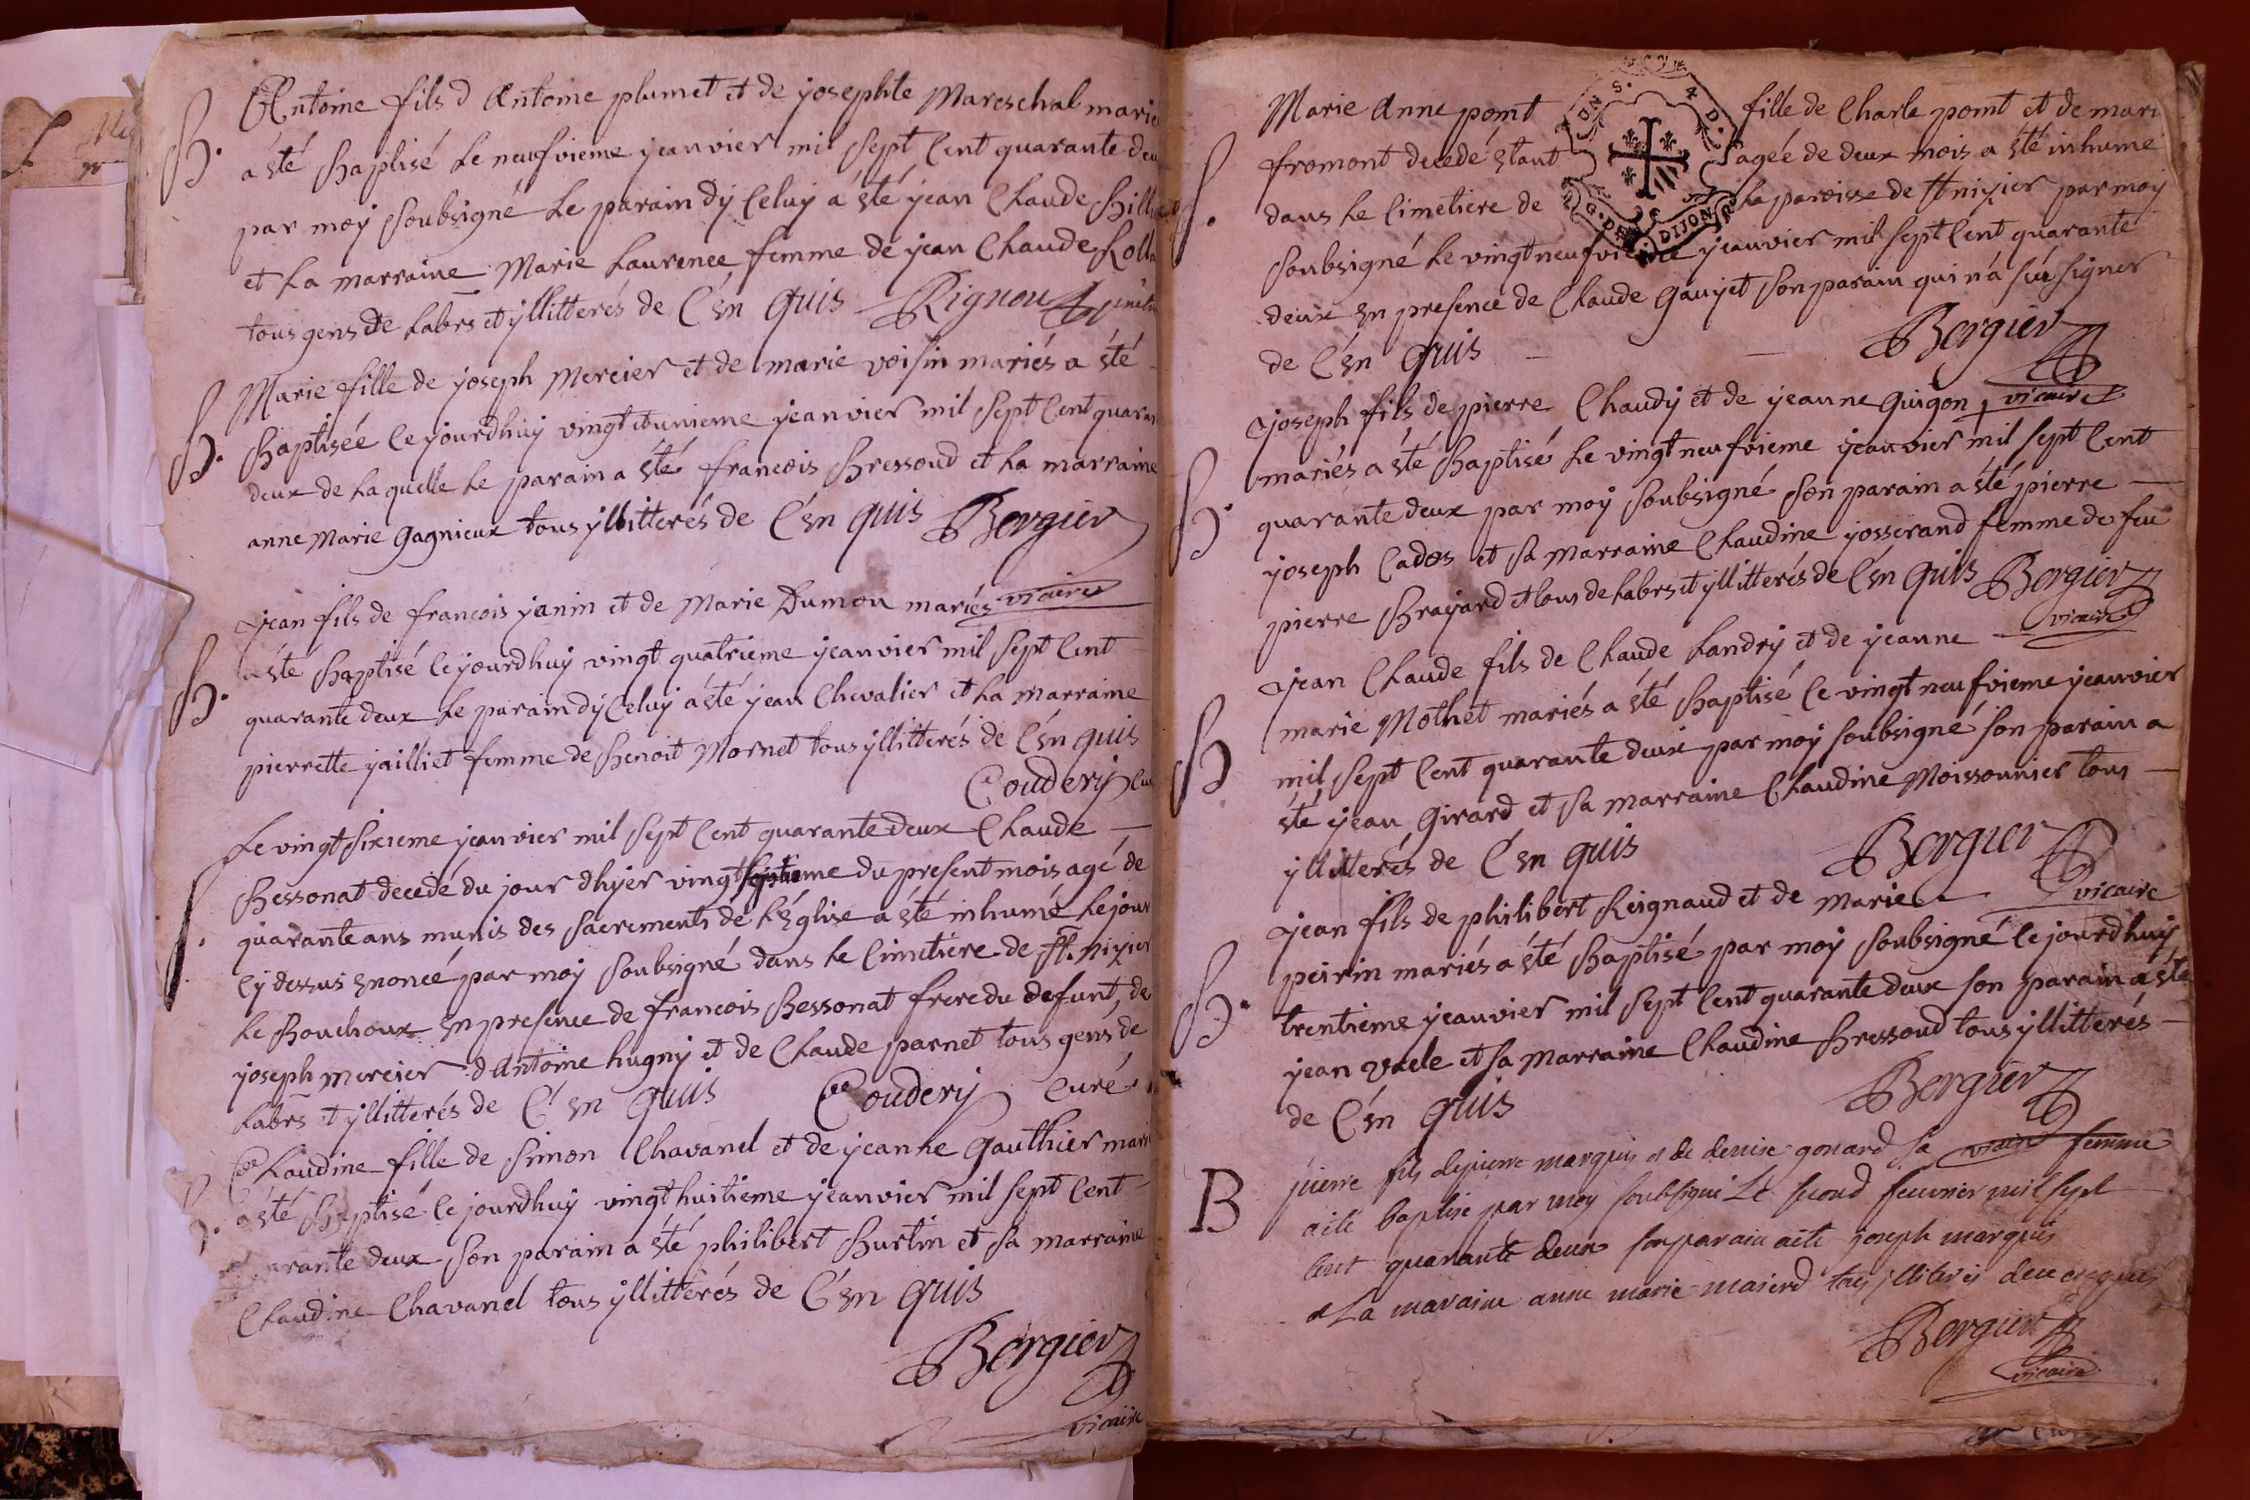 B.
Antoine fils d Antoine plumet et de yosephte Mareschal marie
a été Baptisé le neufvieme yeanvier mil sept Cent quarante deu
par moy soubsigné le parain dy Celuy a été yean Claude
et la marraine Marie Laurence femme de yean Claude
tous gens de Labrs et yllitterés de C en quis Rignou
B.
Marie fille de yoseph Mercier et de marie voisin mariés a été
Baptisée ce yourdhuy vingt et unieme yeanvier mil sept Cent quaran
deux de Laquelle le parain a été francois Bressoud et La marraine
anne Marie gagnieux tous yllitterés de C en quis Bergier
vicaire
B.
yean fils de francois yanin et de Marie Dumon mariés
a été Baptisé ce yourdhuy vingt quatrieme yeanvier mil sept Cent
quarante deux le parain dy Celuy a été yean Chevalier et La marraine
pierrette yailliet femme de Benoit Mornet tous yllitterés de C en quis
Couderj
Le vingt sixieme yeanvier mil sept Cent quarante deux Claude
Bessonat decedé du jour dhyer vingt du present mois agé de
quarante ans munis des sacrements de L'Eglise a été inhumé le jour
Cy dessus enoncé par moy soubsigné dans le Cimetiere de st. nizier
le Bouchoux en presence de francois Bessonat frere du defunt, de
yoseph mercier d Antoine hugny et de Claude parnet tous gens de
Labrs et yllitterés de C en quis Couderj Curé
Claudine fille de Simon Chavanel et de yeanne Gauthier marié
a été Baptisé ce jourdhuy vingt huitieme yeanvier mil sept Cent
arante deux son parain a été philibert Burtin et sa marraine
Claudine Chavanel tous yllitterés de C en quis
Bergier
vicaire
Marie Anne pomt fille de Charle pomt et de mari
fromont decedé etant agée de deux mois a été inhumé
dans le Cimetiere de La paroisse de st nizier par moy
soubsigné le vingt neufvieme yeanvier mil sept Cent quarante
deux en presence de Claude Gauyet son parain qui n'a sçu signer
de C en quis Bergier
vicaire
B.
Joseph fils de pierre Chaudy et de yeanne Guigon
mariés a été Baptisé le vingt neufvieme yeanvier mil sept Cent
quarante deux par moy soubsigné son parain a été pierre
yoseph Cados et sa marraine Claudine yosserand femme de feu
pierre Brayard et tous de Labrs et yllitterés de C en quis Bergier
vicaire
B
yean Claude fils de Claude Landry et de yeanne
marie Mothet mariés a été Baptisé ce vingt neufvieme yeanvier
mil sept Cent quarante deux par moy soubsigné son parain a
été yean Girard et sa marraine Claudine Moissonnier tous
yllitterés de C en quis Bergier
vicaire
B.
yean fils de philibert Reignaud et de Marie
peirin mariés a été Baptisé par moy soubsigné ce jourdhuy
trentieme yeanvier mil sept Cent quarante deux son parain a été
yean et sa marraine Claudine Bressoud tous yllitterés
de C en quis Bergier
vicaire
B
pierre fils de pierre marquis et de denise gonard sa femme
a ete baptise par moy soubsigné Le second feuvrier mil sept
Cent quarante deux son parain a ete joseph marquis
et La maraine anne marie tous illiteres
Bergier
vicaire